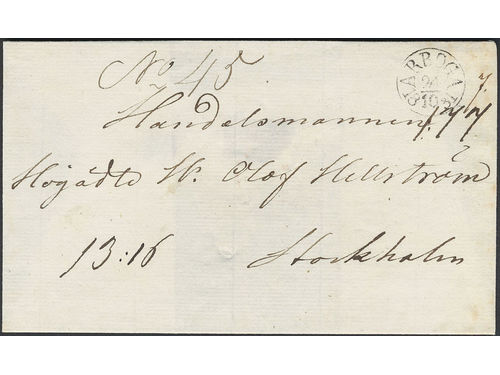 No 45
ARBOGA
24
10
Handelsmannen
Högädle H. Olof Hellström
13:16 Stockholm